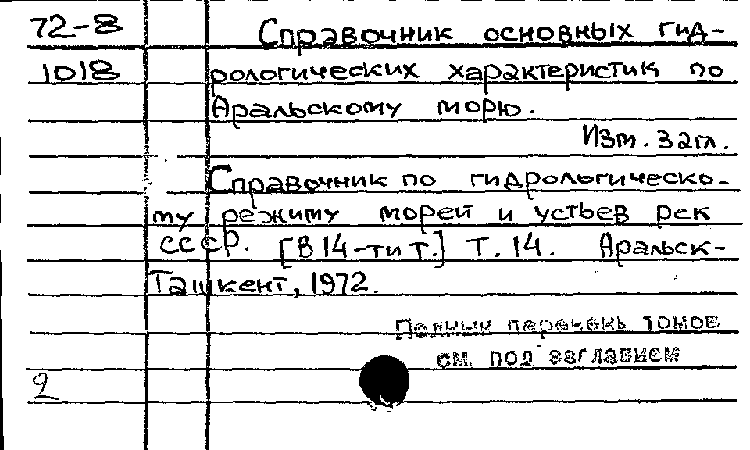 72-8
1018
Справочник основных гид-
рологических характеристик по
Аральскому морю.
Изм. загл.
Справочник по гидрологическо-
му режиму морей и устьев рек
СССР. [В 14-ти т.] Т. 14. Аральск-
Ташкент, 1972.
Полный перечень томов
см. под заглавием
2